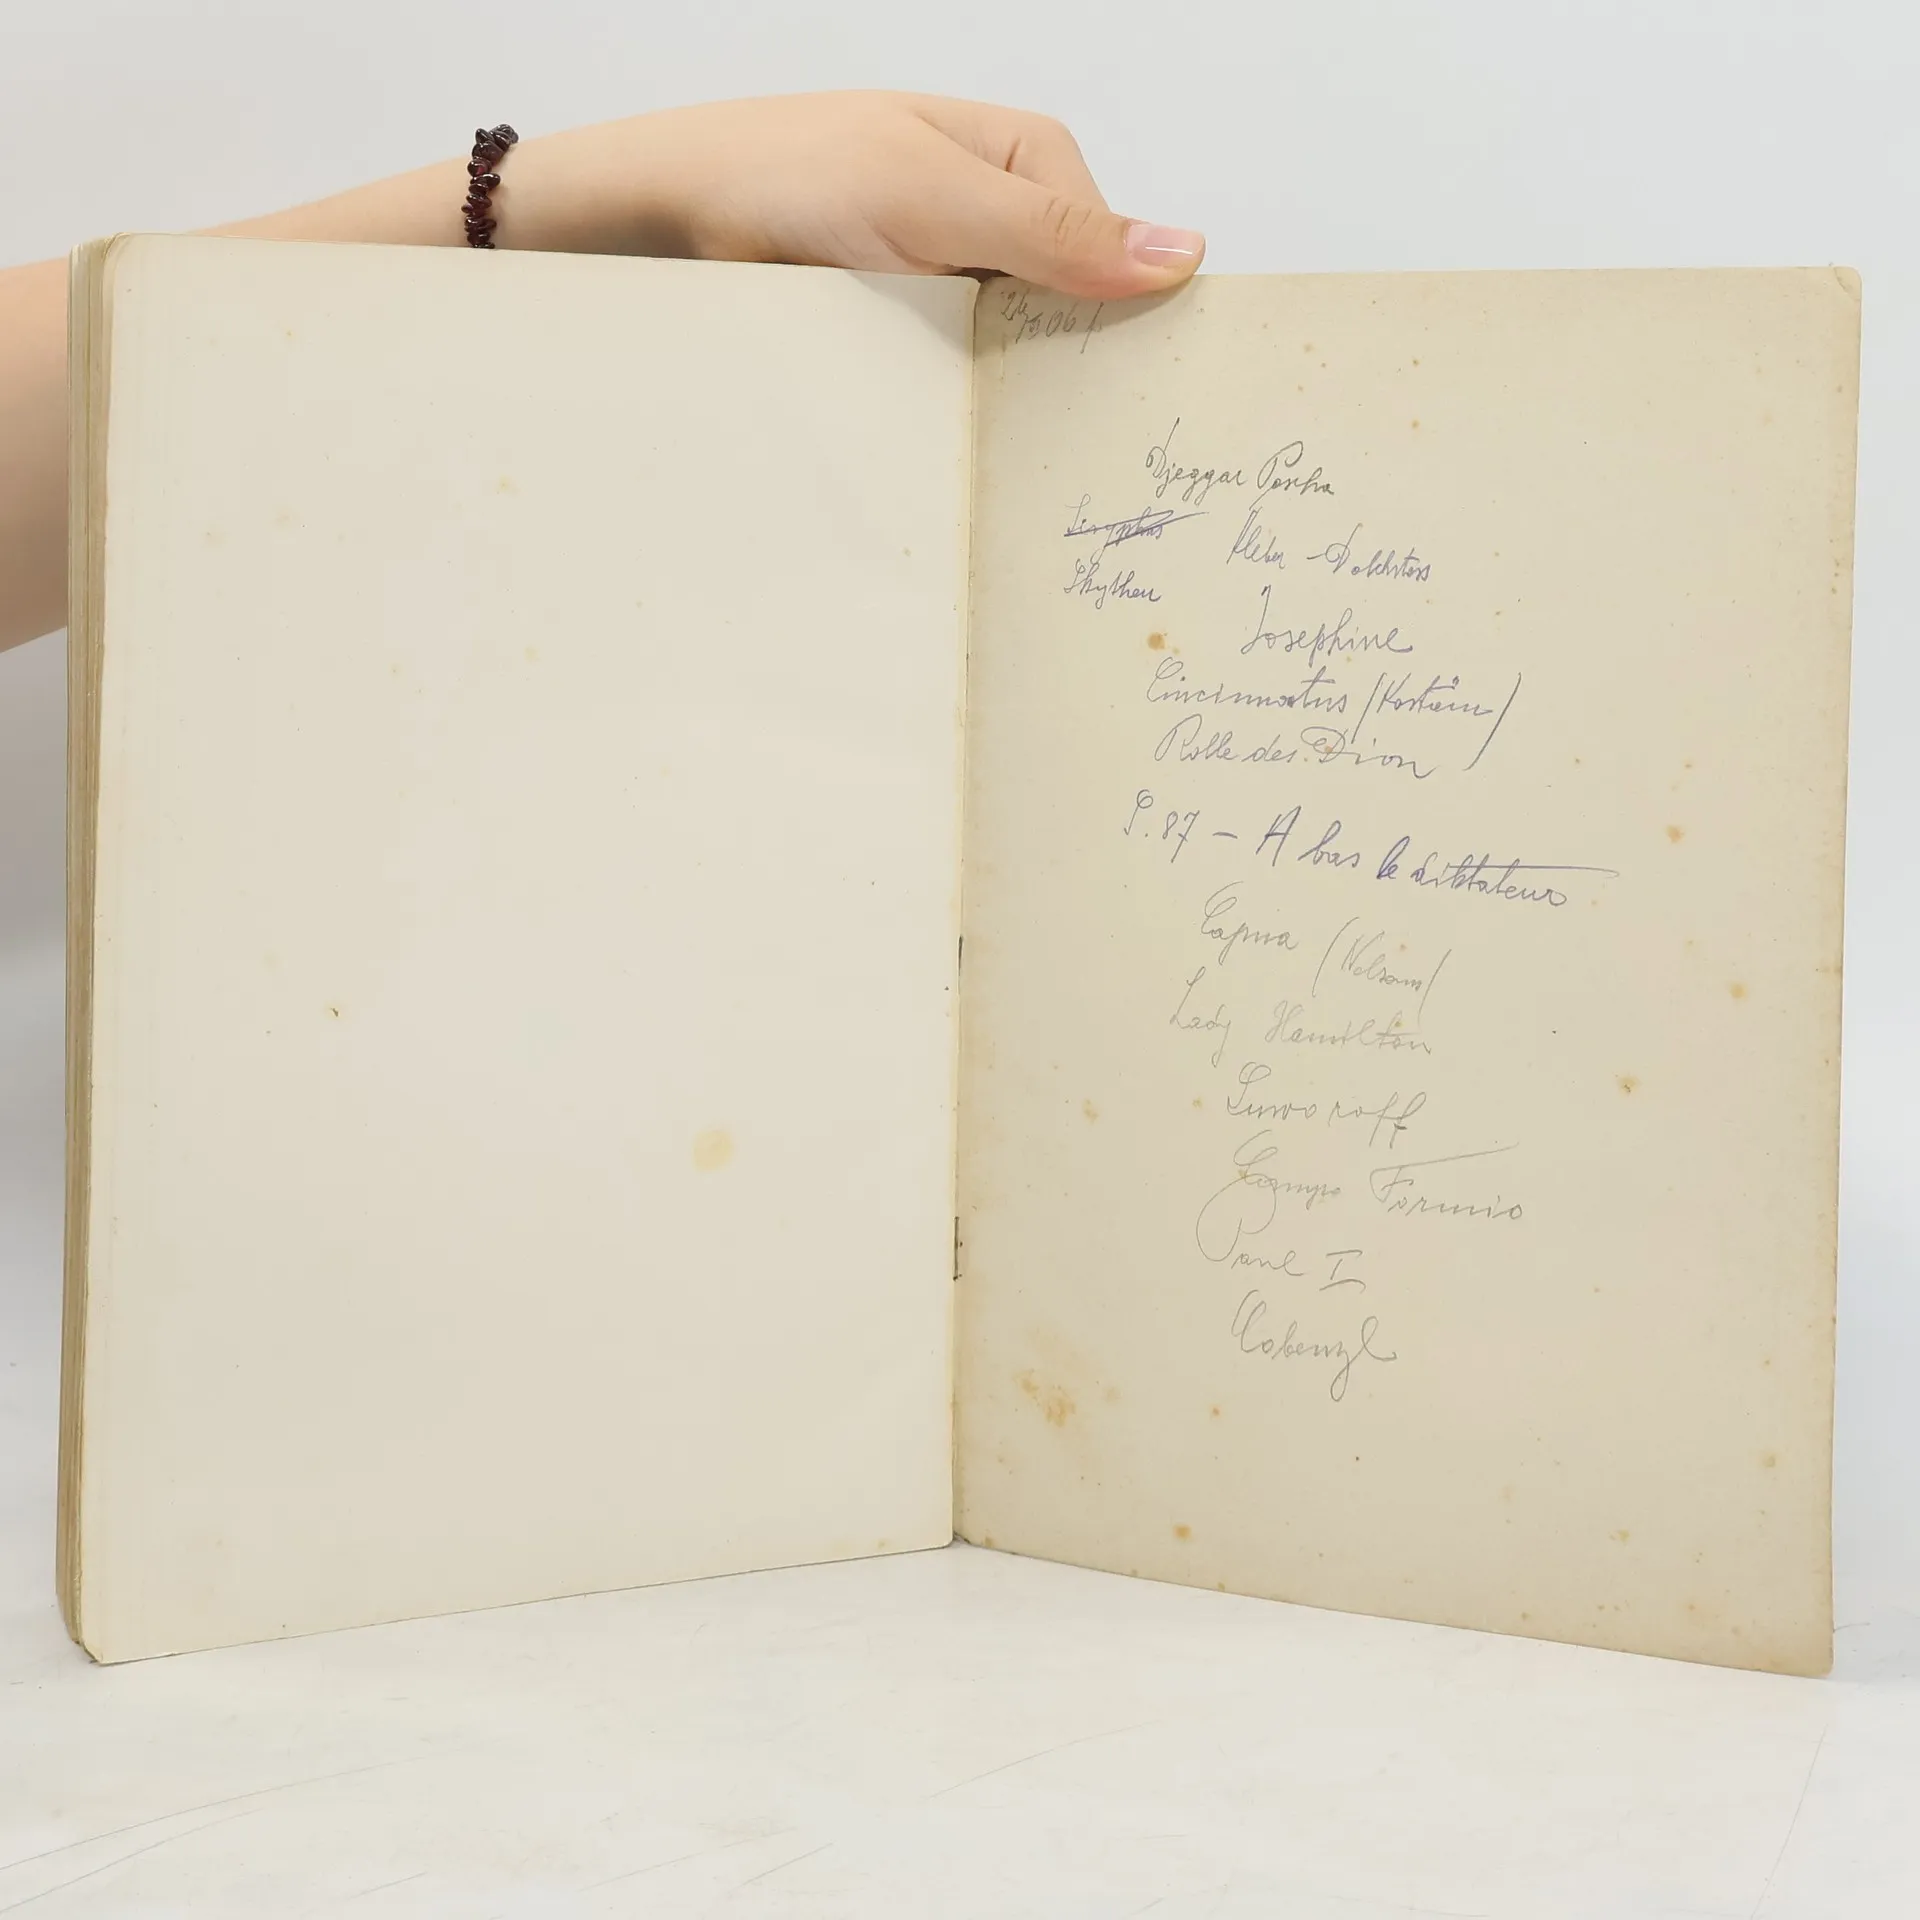 Djeggar Pascha
Kleber - Dolchstoss
Skythen
Josephine
Cincinnatus (Kostüm)
Rolle des Dion
S. 87 - A bas le diktateur
Capua (Nelson)
Lady Hamilton
Suwo roff
Campo Formio
Paul I
Cobenzl